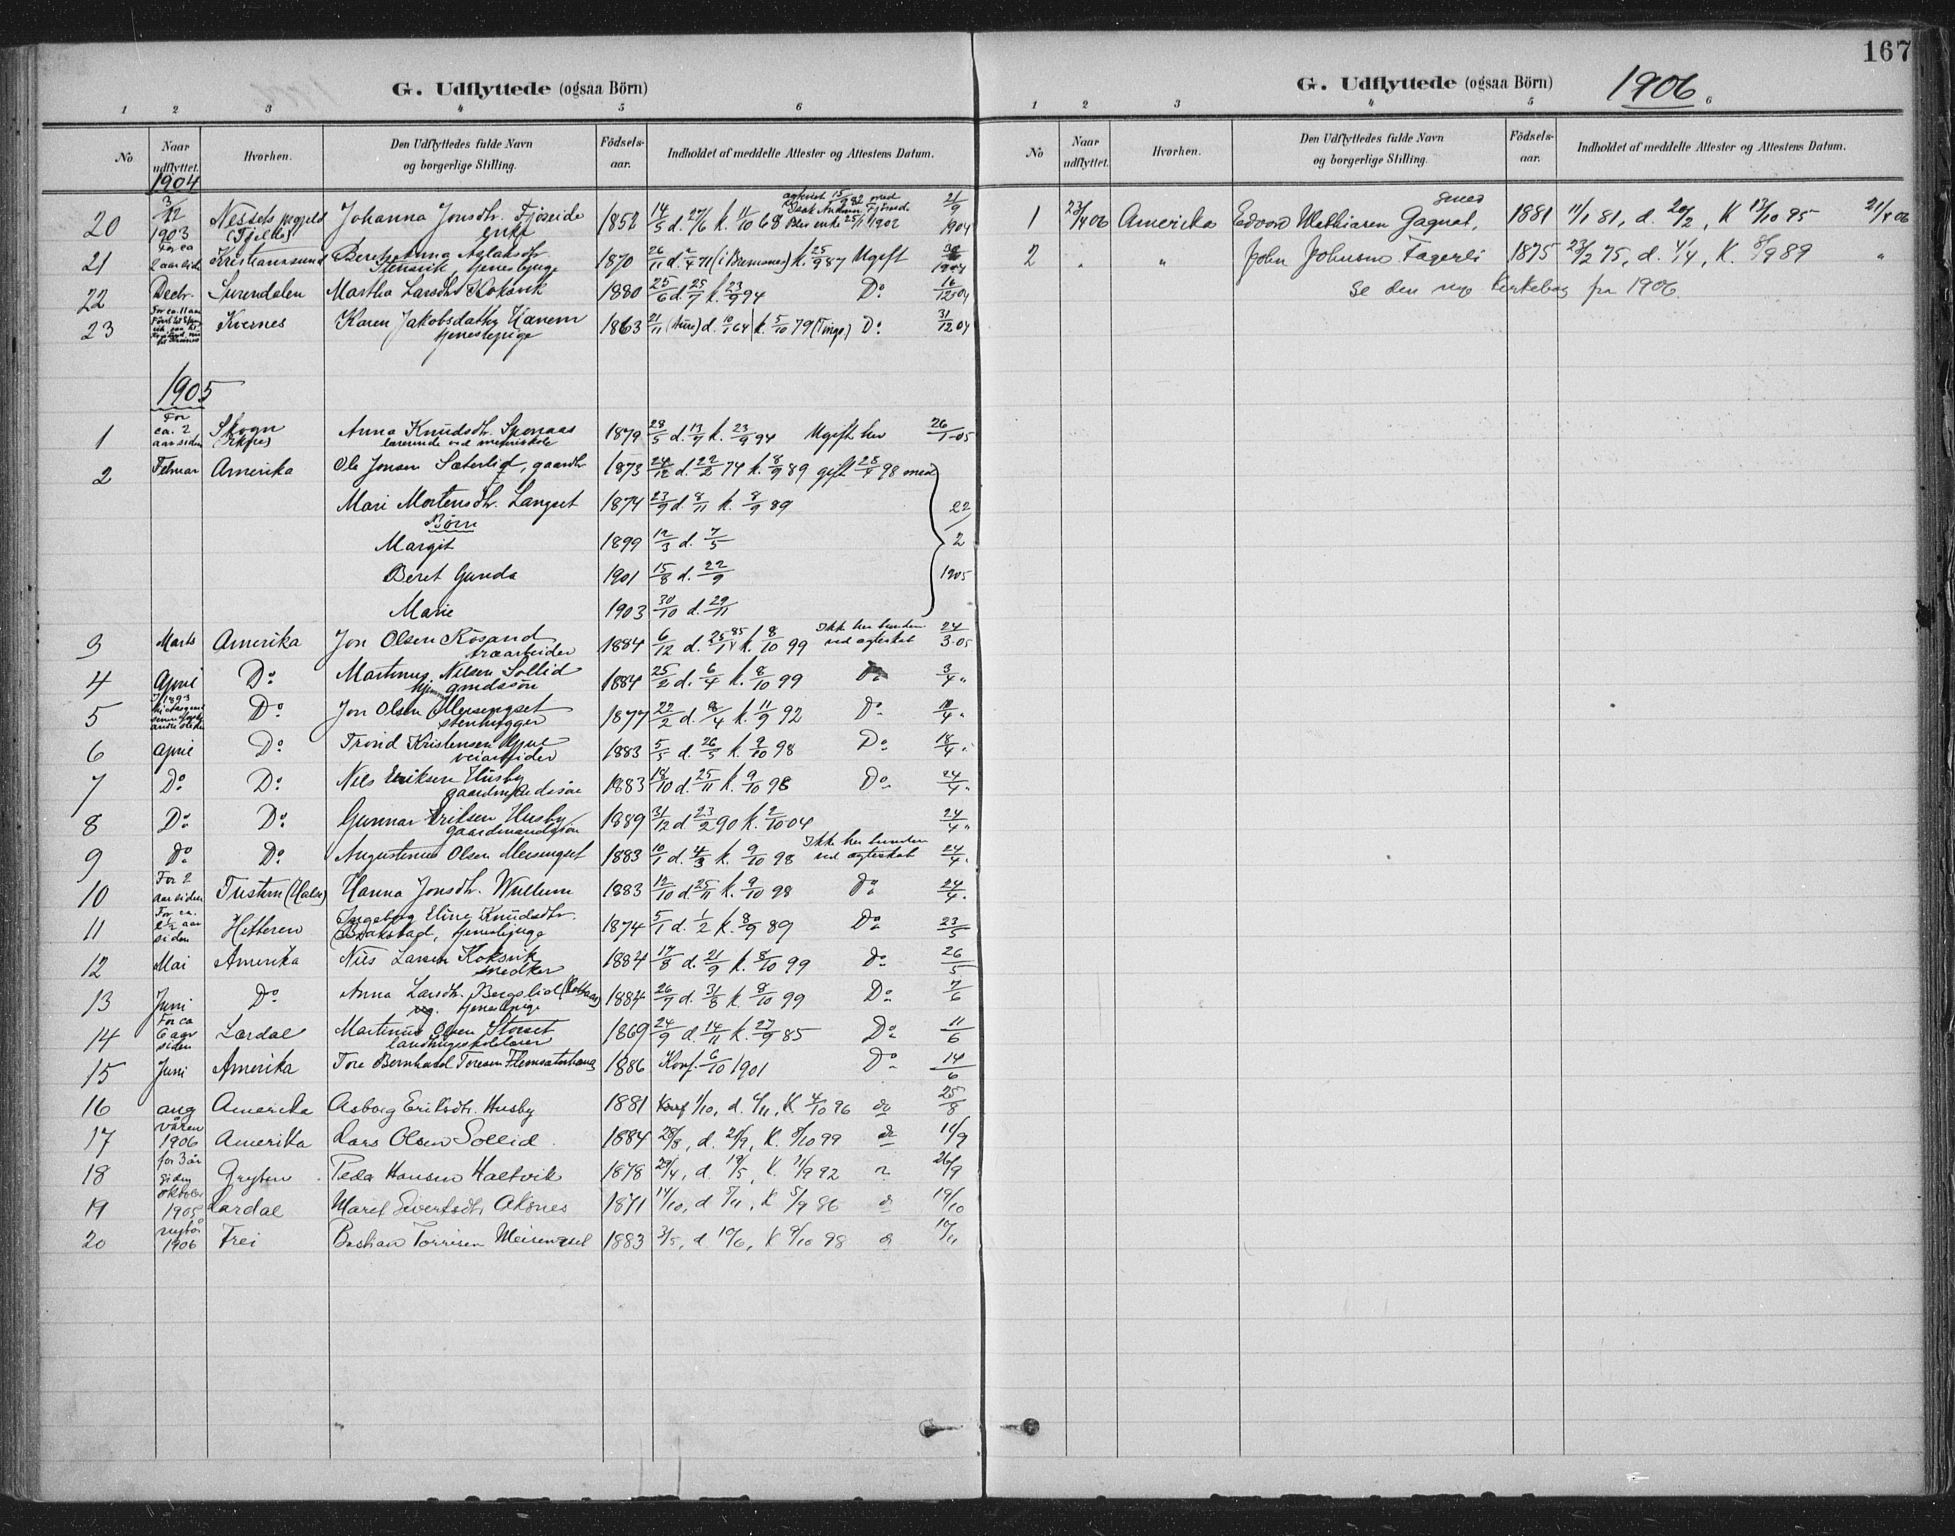 G. Udflyttede (ogsaa Börn)
1 2 3 4 5 6
No Naar udflyttet. Hvorhen. Den Udflyttedes fulde Navn og borgerlige Stilling. Födsels-aar. Indholdet af meddelte Attester og Attestens Datum.
1904
20 3/12 1903 Nessets Johanna Jonsdtr. Fjöseide enke 1852 14/5 d. 27/6 k. 11/10 68 21/9 1904
21 For ca 2 aar siden Kristianssund Beret Anna Aslaksdtr. Stensvik, tjenestepige 1870 26/11 d. 2/4 71 (i Bremsnes) k. 25/9 87 Ugift 1904
22 Decbr. Surendalen Martha Larsdtr. Koksvik 1880 25/6 d. 25/7 k. 23/9 94 Do 16/12 04
23 Kvernes Karen Jakobsdatter Hanem tjenestepige 1863 21/11 (Aure) d. 10/1 64 k. 5/10 79 (Tingv.) Do 31/12 04
1905
1 For ca. 2 aar siden Skogn (Ekne) Anna Knudsdtr. lærerinde 1879 28/5 d. 13/7 k. 23/9 94 Ugift her 26/1-05
2 Februar Amerika Ole Jonsen Sæterlid, gaardbr. 1873 24/12 d. 22/2 74 k. 8/9 89 gift 25/4 98 med
Mari Mortensdtr. Langset 1874 23/9 d. 8/11 k. 8/9 89 22/2 1905
Börn
Margit 1899 12/3 d. 7/5
Beret Gunda 1901 15/8 d. 22/9
Marie 1903 30/10 d. 29/11
3 Marts Amerika Jon Olsen Rösand 1884 6/12 d. 25/1 85 k. 8/10 99 Ikke her bunden ved ægteskab 24/3-05
4 April Do Martinus Nilsen Sollid 1884 25/2 d. 6/4 k. 8/10 99 Do 3/4 "
5 Do Jon Olsen Meisingset stenhugger 1877 22/2 d. 8/4 k. 11/9 92 Do
6 April Do Trond Kristensen veiarbeider 1883 5/5 d. 26/5 k. 9/10 98 Do 18/4 "
7 Do Do Nils Eriksen Husby gaardmandssön 1883 18/10 d. 25/11 k. 9/10 98 Do 24/4 "
8 Do Do Gunnar Eriksen Husby gaardmandssön 1889 31/12 d 23/2 90 k. 2/10-04 24/4 "
9 Do Do Augustinus Olsen Meisingset 1883 10/1 d. 4/3 k. 9/10 98 Ikke her bunden ved ægteskab 24/4.
10 For 2 aar siden Tustern (Halse) Hanna Jonsdtr. Wullum 1883 12/10 d 25/11 k. 9/10 98 Do 24/4.
11 For ca. 2 1/2 aar siden Hitteren Ingeborg Eline Knudsdtr. Bakstad, tjenestepige 1874 5/1 d. 1/2 k. 8/9 89 Do 23/5
12 Mai Amerika Nils Larsen Koksvik snedker 1884 17/8 d. 21/9 k. 8/10 99 Do 26/5
13 Juni Do Anna Larsdtr. Bergslid tjenestepige 1884 26/7 d 31/8 k 8/10 99 Do 7/6
14 For ca 6 aar siden Lærdal Martinus Olsen Storset 1869 24/9 d. 14/11 k. 27/9 85 Do 11/6
15 Juni Amerika Tore Bernhard Toresen Flemsæterhaug 1886 Konf. 6/10 1901 Do 14/6
16 aug Amerika Aasborg Eriksdtr. Husby 1881 1/10, d. 6/11, K. 4/10 96 do 25/8
17 våren 1906 Amerika Lars Olsen Sollid. 1884 28/8, d. 21/9, K. 8/10 99 do 11/9
18 for 3 år siden Gryten Peder Hansen Holtvik 1878 29/4, d. 19/5, K. 11/9 92 " 26/9
19 oktober 1905 Lærdal Marit Sivertsdtr. Aksnes 1871 14/10, d 5/11, K 5/9 86 do 19/10
20 nytår 1906 Frei Bastian Torresen Meisingset 1883 3/5, d. 10/6, K 9/10 98 do 10/11
167
G. Udflyttede (ogsaa Börn) 1906
1 2 3 4 5 6
No Naar udflyttet. Hvorhen. Den Udflyttedes fulde Navn og borgerlige Stilling. Födsels-aar. Indholdet af meddelte Attester og Attestens Datum.
1 23/4 06 Amerika Edvard Mathiasen Gagnat, smed 1881 11/1 81, d. 20/2, K 13/10 95 21/4 06
2 " " John Johnsen Fagerli 1875 23/2 75, d. 4/4, K. 8/9 89 "
Se den nye kirkebog fra 1906.